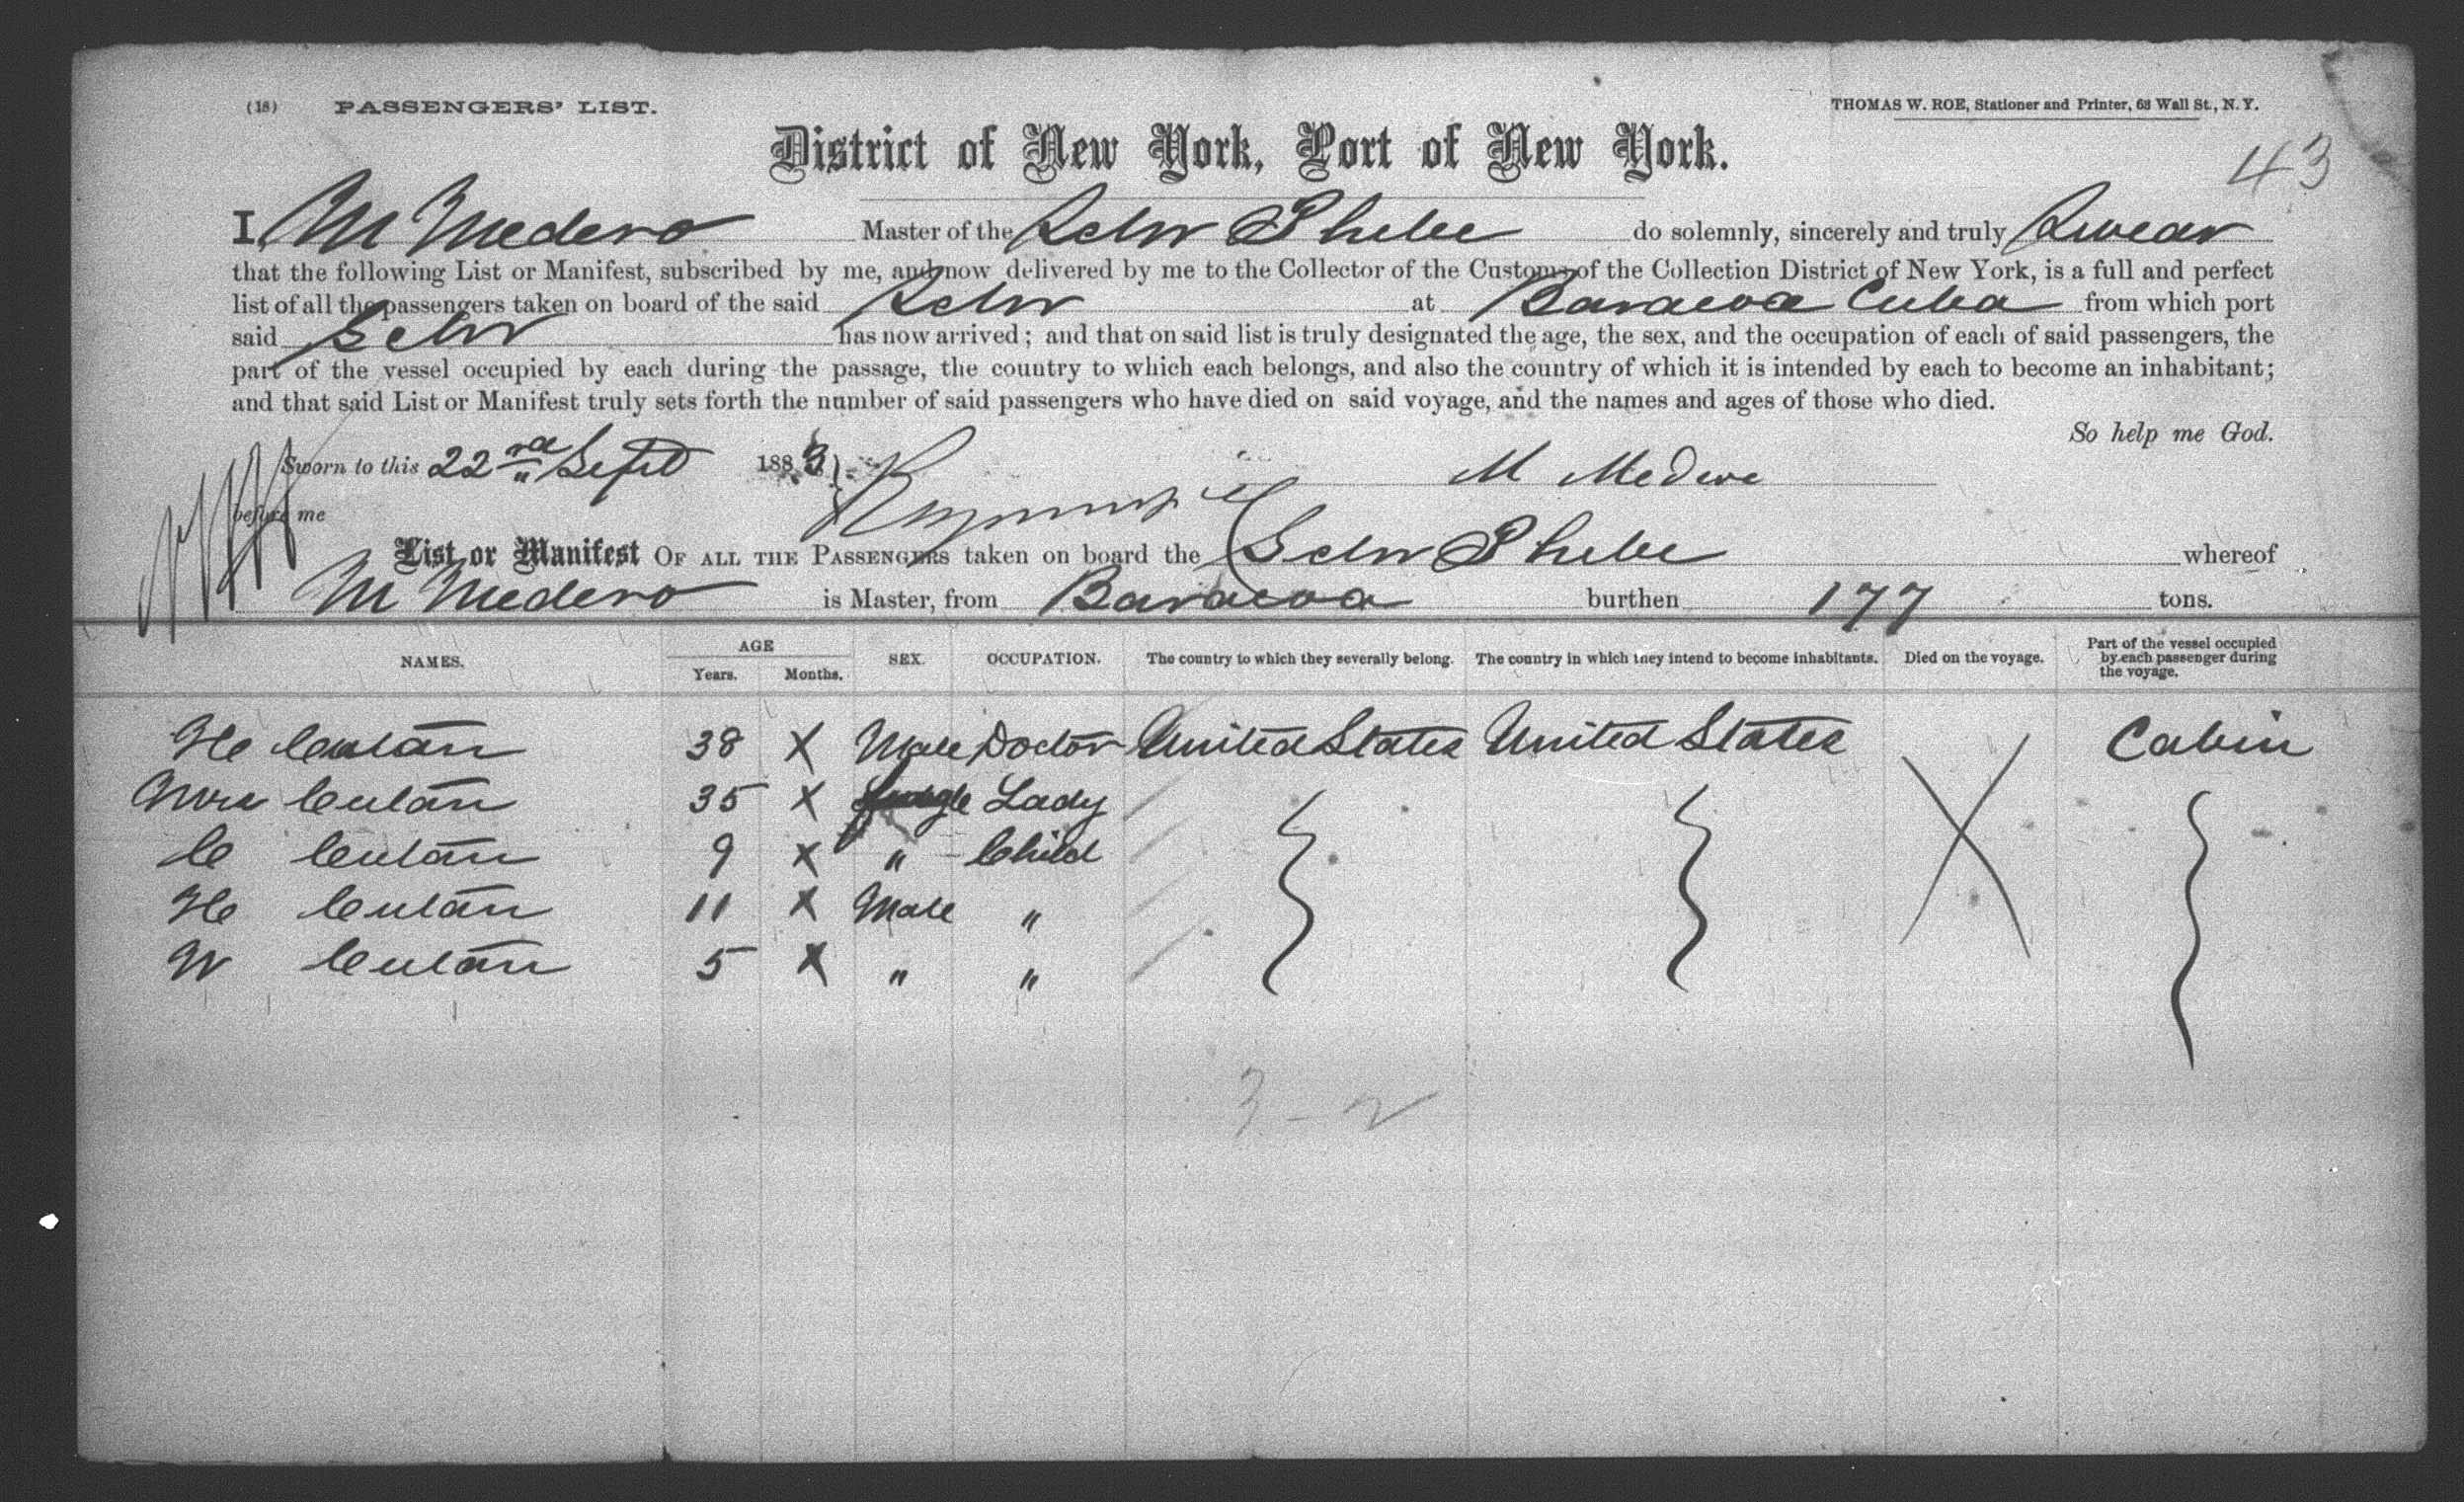 (18) PASSENGERS' LIST.
THOMAS W. ROE, Stationer and Printer, 63 Wall St., N. Y.
43
District of New York, Port of New York.
I, M Medero Master of the Schr Phebe do solemnly, sincerely and truly Swear
that the following List or Manifest, subscribed by me, and now delivered by me to the Collector of the Customs of the Collection District of New York, is a full and perfect
list of all the passengers taken on board of the said Schr at Baracoa Cuba from which port
said Schr has now arrived; and that on said list is truly designated the age, the sex, and the occupation of each of said passengers, the
part of the vessel occupied by each during the passage, the country to which each belongs, and also the country of which it is intended by each to become an inhabitant;
and that said List or Manifest truly sets forth the number of said passengers who have died on said voyage, and the names and ages of those who died.
So help me God.
Sworn to this 22nd Sept 1883
M Medero
before me
List or Manifest OF ALL THE PASSENGERS taken on board the Schr Phebe whereof
M Medero is Master, from Baracoa burthen 177 tons.
NAMES. AGE Years. Months. SEX. OCCUPATION. The country to which they severally belong. The country in which they intend to become inhabitants. Died on the voyage. Part of the vessel occupied by each passenger during the voyage.
H 38 X Male Doctor United States United States X Cabin
Mrs 35 X Lady
C 9 X " Child
H 11 X Male "
W 5 X " "
3 - 2